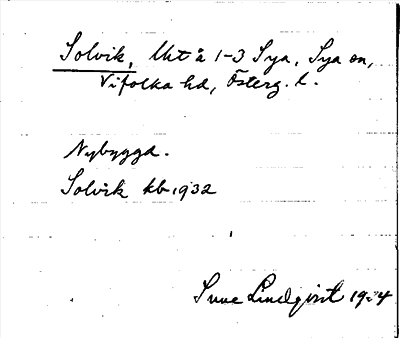 Solvik, Uut å 1-3 Sya, Sya sn,
Vifolka hd, Österg. l.
Nybyggd.
Solvik kb 1932
Sune Lindqvist 19 4